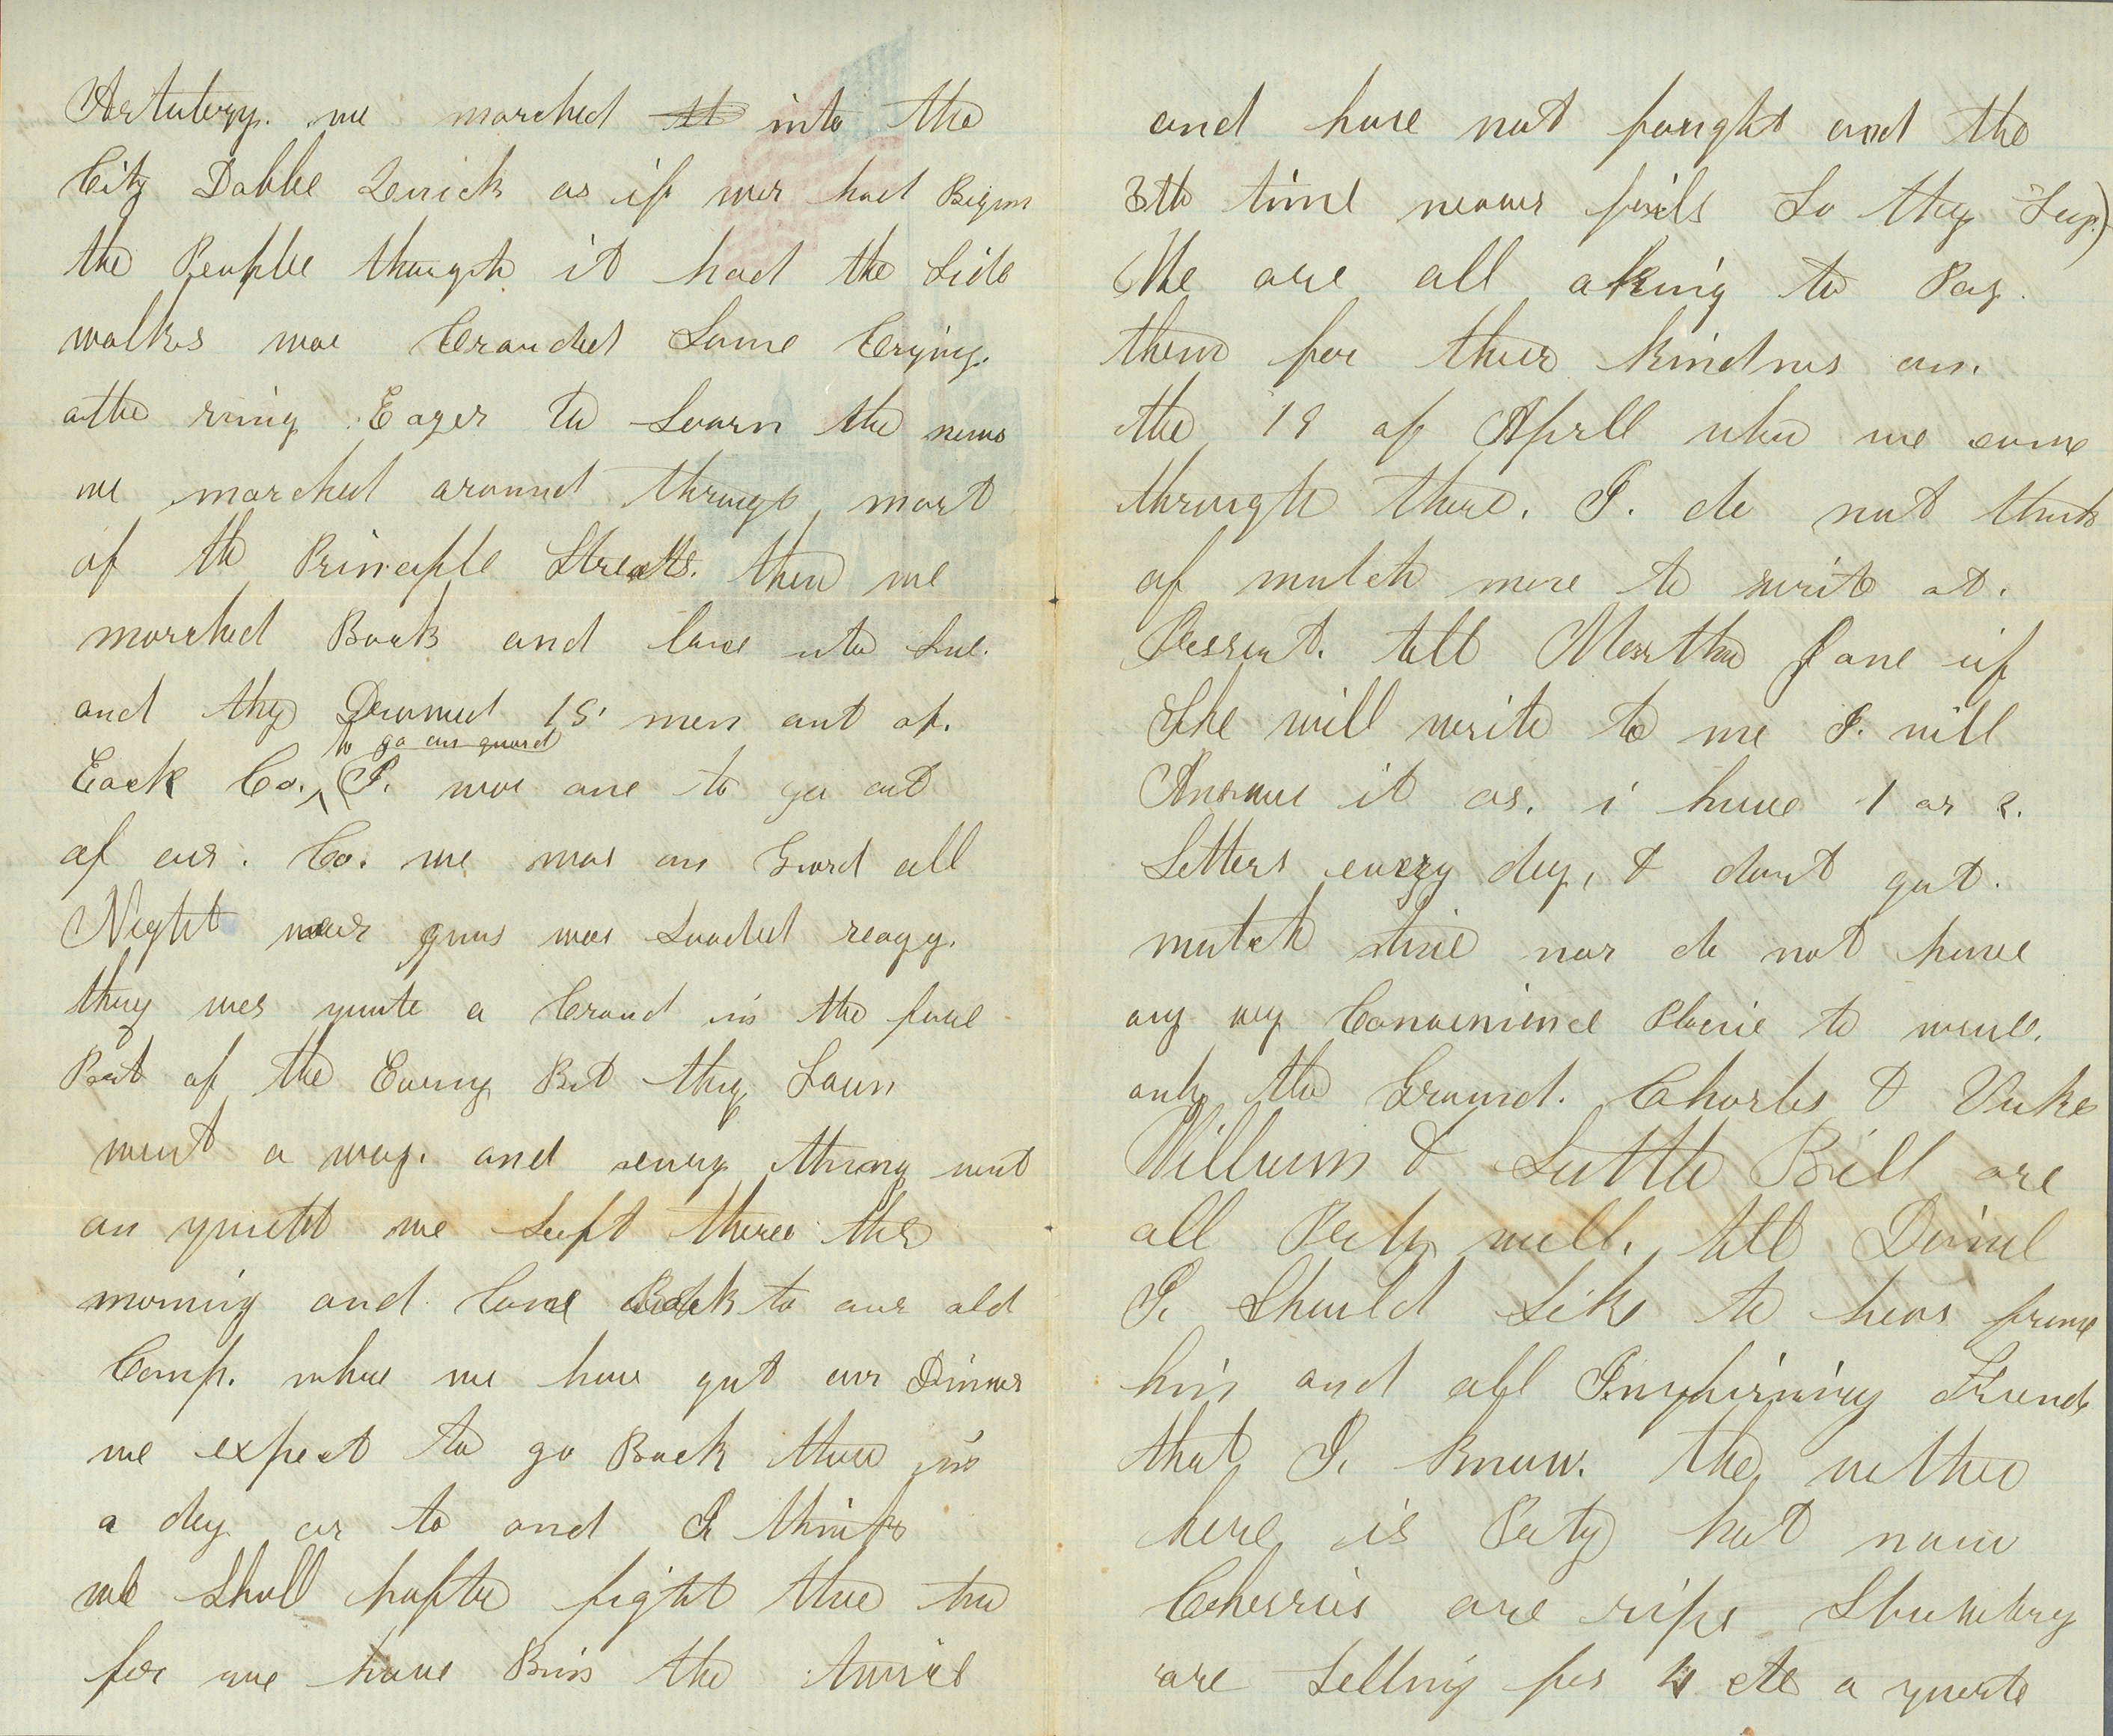 Artulery. we marched into the
City Dobble Quick as if wer had Bigun
the People thought it had the Side
walks was Crouded Some Crying.
othe ring Eager to Learn the news
we marched around through most
of th Principle Streatts. then we
marched Back and Came into
and thy 15 men out of.
to go on guard
Eack Co. I. was one to go out
of our. Co. we was on Gward all
Night our guns was Loaded
they wes quite a Croud in the fore
Part of the Evening But they Soun
went a way. and every thing went
on quiett we Left there this
morning and Came Back to our old
Camp. whare we have got our Dinner
we expect to go Back thare in
a day or to and I think
we Shall hafto fight thare to
for we have Bin the twice
and have not faught and the
3th time never fails So they Say)
We are all aking to Pay.
them for their kindnes on.
the 19 of Aprll when we came
through there. I. do not think
of mutch more to write at.
Pressent. tell Marthe Jane if
She will write to me I. will
Answue it as. i have 1 or 2.
Letters every day, & dont got.
mutch time nor do not have
any wey Convenience Placie to write.
only the Ground. Charles & Duke
William & Little Bill are
all Prety well. tell Daniel
I. Should Like to hear frome
him and all Inquiring Friends
that I. know. the wether
here is Prety hot now
Cherries are ripe Strawbery
are Selling for 4 cts a quarte